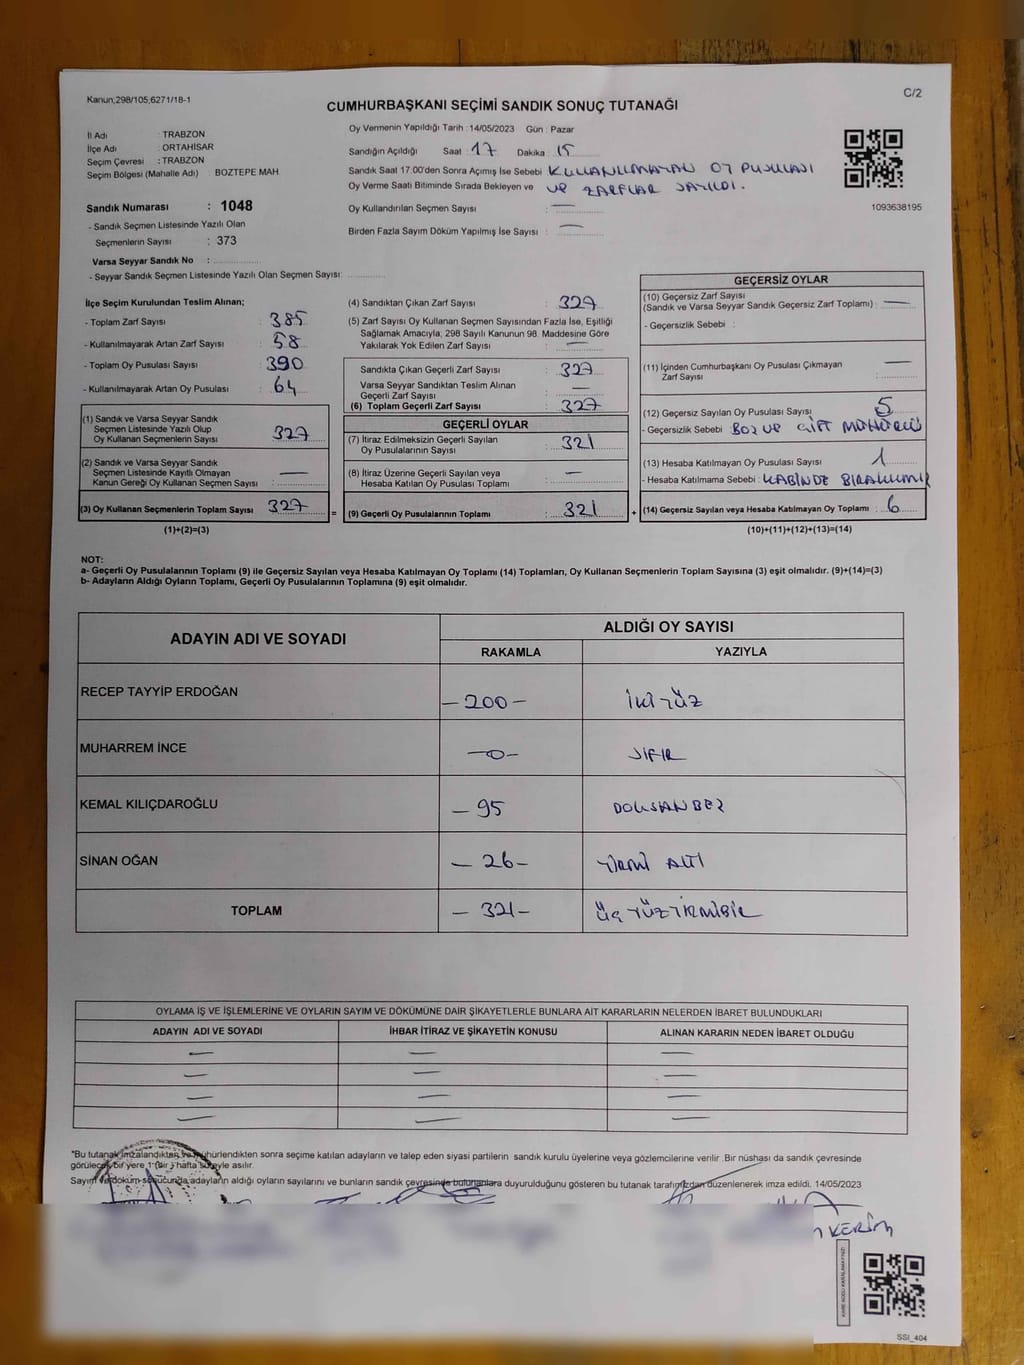 Kanun;298/105,6271/18-1
C/2
CUMHURBAŞKANI SEÇİMİ SANDIK SONUÇ TUTANAĞI
İl Adı : TRABZON
İlçe Adı : ORTAHİSAR
Seçim Çevresi : TRABZON
Seçim Bölgesi (Mahalle Adı) BOZTEPE MAH.
Sandık Numarası : 1048
- Sandık Seçmen Listesinde Yazılı Olan
Seçmenlerin Sayısı : 373
Varsa Seyyar Sandık No :
- Seyyar Sandık Seçmen Listesinde Yazılı Olan Seçmen Sayısı:
Oy Vermenin Yapıldığı Tarih :14/05/2023 Gün : Pazar
Sandığın Açıldığı Saat : 17 Dakika : 15
Sandık Saat 17.00'den Sonra Açımış İse Sebebi : KULLANILMAYAN OY PUSULASI
Oy Verme Saati Bitiminde Sırada Bekleyen ve VE ZARFLAR SAYILDI.
Oy Kullandırılan Seçmen Sayısı : —
Birden Fazla Sayım Döküm Yapılmış İse Sayısı : —
1093638195
İlçe Seçim Kurulundan Teslim Alınan;
- Toplam Zarf Sayısı : 385
- Kullanılmayarak Artan Zarf Sayısı : 58
- Toplam Oy Pusulası Sayısı : 390
- Kullanılmayarak Artan Oy Pusulası : 64
(1) Sandık ve Varsa Seyyar Sandık
Seçmen Listesinde Yazılı Olup
Oy Kullanan Seçmenlerin Sayısı : 327
(2) Sandık ve Varsa Seyyar Sandık
Seçmen Listesinde Kayıtlı Olmayan
Kanun Gereği Oy Kullanan Seçmen Sayısı : —
(3) Oy Kullanan Seçmenlerin Toplam Sayısı : 327
(1)+(2)=(3)
(4) Sandıktan Çıkan Zarf Sayısı : 327
(5) Zarf Sayısı Oy Kullanan Seçmen Sayısından Fazla İse, Eşitliği
Sağlamak Amacıyla; 298 Sayılı Kanunun 98. Maddesine Göre
Yakılarak Yok Edilen Zarf Sayısı : —
Sandıkta Çıkan Geçerli Zarf Sayısı : 327
Varsa Seyyar Sandıktan Teslim Alınan
Geçerli Zarf Sayısı : —
(6) Toplam Geçerli Zarf Sayısı : 327
GEÇERLİ OYLAR
(7) İtiraz Edilmeksizin Geçerli Sayılan
Oy Pusulalarının Sayısı : 321
(8) İtiraz Üzerine Geçerli Sayılan veya
Hesaba Katılan Oy Pusulası Toplamı : —
= (9) Geçerli Oy Pusulalarının Toplamı : 321 +
GEÇERSİZ OYLAR
(10) Geçersiz Zarf Sayısı
(Sandık ve Varsa Seyyar Sandık Geçersiz Zarf Toplamı) : —
- Geçersizlik Sebebi :
(11) İçinden Cumhurbaşkanı Oy Pusulası Çıkmayan
Zarf Sayısı : —
(12) Geçersiz Sayılan Oy Pusulası Sayısı : 5
- Geçersizlik Sebebi : BOŞ VE ÇİFT MÜHÜRLÜ
(13) Hesaba Katılmayan Oy Pusulası Sayısı : 1
- Hesaba Katılmama Sebebi : KABİNDE BIRAKILMIŞ
(14) Geçersiz Sayılan veya Hesaba Katılmayan Oy Toplamı : 6
(10)+(11)+(12)+(13)=(14)
NOT:
a- Geçerli Oy Pusulalarının Toplamı (9) ile Geçersiz Sayılan veya Hesaba Katılmayan Oy Toplamı (14) Toplamları, Oy Kullanan Seçmenlerin Toplam Sayısına (3) eşit olmalıdır. (9)+(14)=(3)
b- Adayların Aldığı Oyların Toplamı, Geçerli Oy Pusulalarının Toplamına (9) eşit olmalıdır.
ADAYIN ADI VE SOYADI ALDIĞI OY SAYISI
RAKAMLA YAZIYLA
RECEP TAYYİP ERDOĞAN —200— İKİ YÜZ
MUHARREM İNCE —0— SIFIR
KEMAL KILIÇDAROĞLU —95 DOKSANBEŞ
SİNAN OĞAN —26— YİRMİ ALTI
TOPLAM —321— ÜÇ YÜZ YİRMİBİR
OYLAMA İŞ VE İŞLEMLERİNE VE OYLARIN SAYIM VE DÖKÜMÜNE DAİR ŞİKAYETLERLE BUNLARA AİT KARARLARIN NELERDEN İBARET BULUNDUKLARI
ADAYIN ADI VE SOYADI İHBAR İTİRAZ VE ŞİKAYETİN KONUSU ALINAN KARARIN NEDEN İBARET OLDUĞU
— — —
— — —
— — —
— — —
"Bu tutanak imzalandıktan ve mühürlendikten sonra seçime katılan adayların ve talep eden siyasi partilerin sandık kurulu üyelerine veya gözlemcilerine verilir .Bir nüshası da sandık çevresinde
görülecek bir yere 1 (Bir ) hafta süreyle asılır.
Sayım ve döküm sonucunda adayların aldığı oyların sayılarını ve bunların sandık çevresinde bulunanlara duyurulduğunu gösteren bu tutanak tarafımızdan düzenlenerek imza edildi. 14/05/2023
KERİM
SSI_404